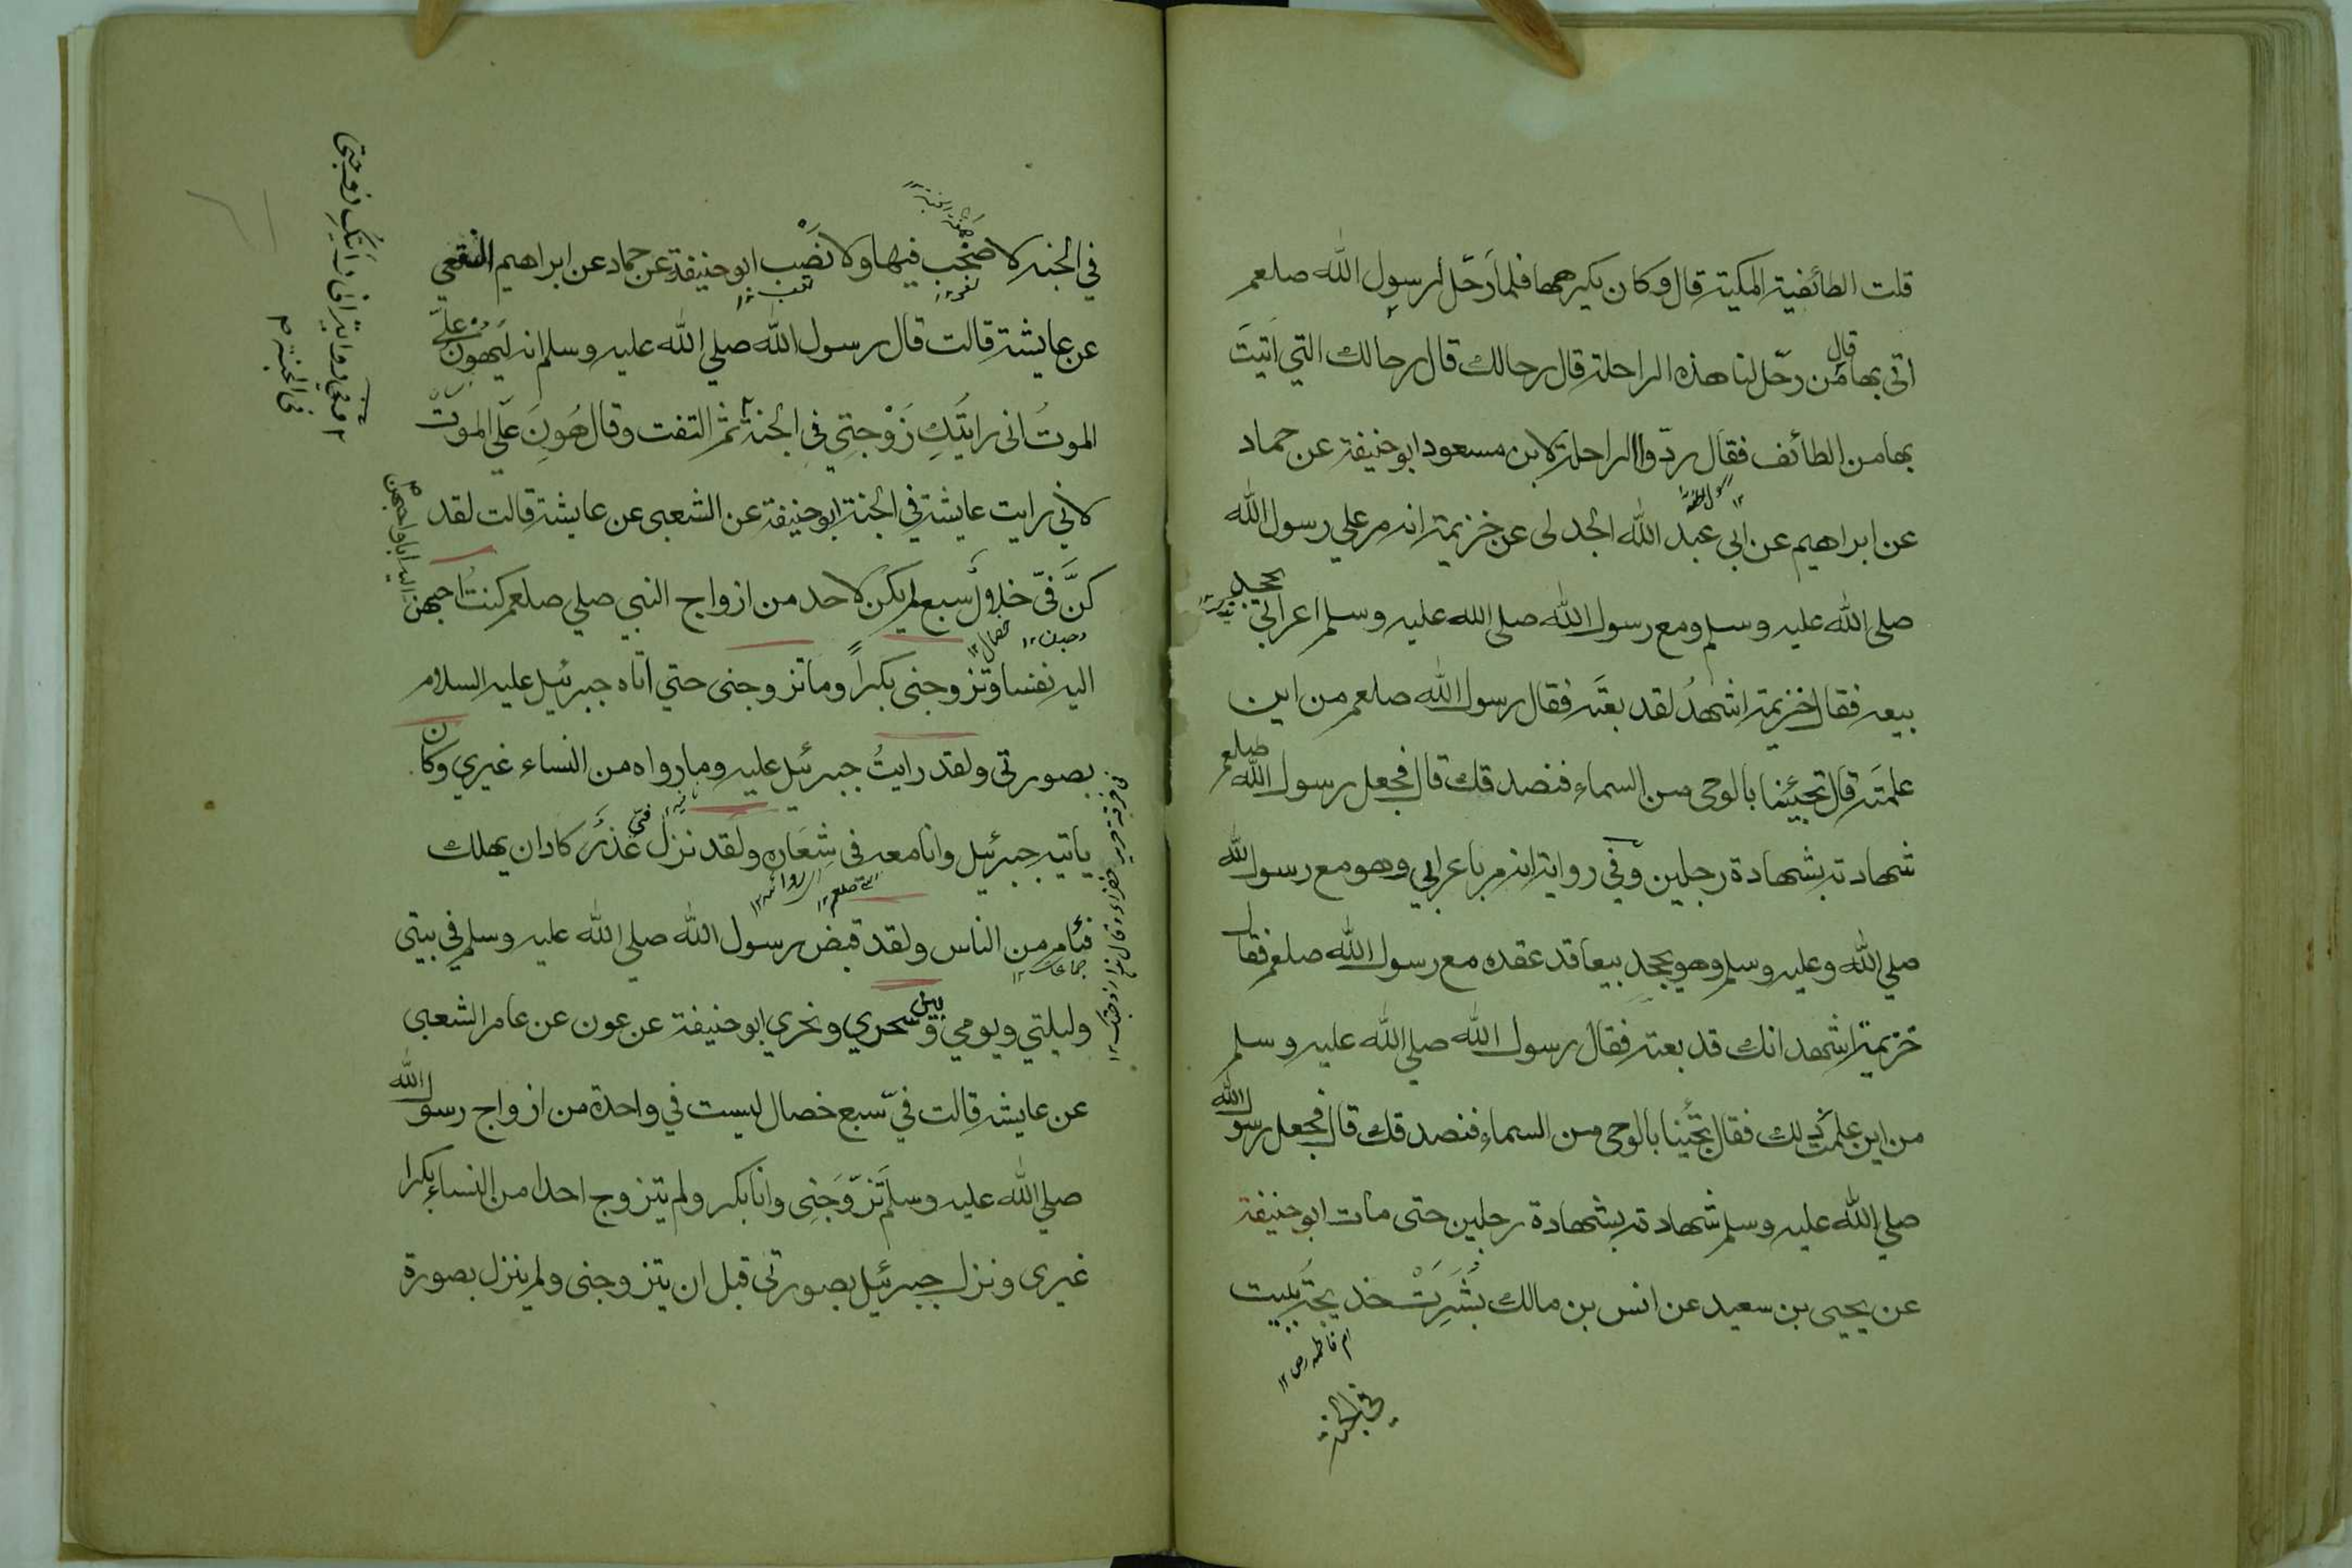 قلت الطائفية المكية قال وكان يكرهها فلما رحّل لرسول الله صلعم
اتى بها قال من رحّل لنا هذه الراحلة قال رحالك قال رحالك التي اتيتَ
بها من الطائف فقال ردّوا الراحلة لابن مسعود ابو حنيفة عن حماد
عن ابراهيم عن ابي عبد الله الجدلى عن خزيمة انه مر علي رسول الله
صلى الله عليه وسلم ومع رسول الله صلى الله عليه وسلم اعرابي يجحد
بيعه فقال خزيمة اشهدُ لقد بعتَه فقال رسول الله صلعم من اين
علمتَه قال تجيئنا بالوحى من السماء فنصدقك قال فجعل رسول الله صلعم
شهادته بشهادة رجلين وفي رواية انه مر باعرابي وهو مع رسول الله
صلي الله وعليه وسلم وهو يجحد بيعا قد عقده مع رسول الله صلعم فقال
خزيمة اشهد انك قد بعته فقال رسول الله صلي الله عليه وسلم
من اين علمت ذلك فقال تجئنا بالوحى من السماء فنصدقك قال فجعل رسول الله
صلي الله عليه وسلم شهادته بشهادة رجلين حتى مات ابو حنيفة
عن يحيى بن سعيد عن انس بن مالك بُشِّرَتْ خديجة ببيت
ام فاطمه رض ١٢
في الجنة
في الجنة لا صخب فيها ولا نَصَب ابو حنيفة عن حماد عن ابراهيم النخعي
تعب ١٢
عن عايشة قالت قال رسول الله صلي الله عليه وسلم انه ليهون عليَّ
الموتُ انى رايتكِ زَوْجتِي في الجنة ثم التفت وقال هُونَ عَلَي الموتُ
لاني رايت عايشة في الجنة ابو حنيفة عن الشعبى عن عايشة قالت لقد
كنَّ فيّ خلال سبع لم يكن لاحد من ازواج النبي صلي صلعم كنتُ احبهن
خصال ١٢
اليه نفسا وتزوجنى بكراً وما تزوجنى حتي اتاه جبرئيل عليه السلام
بصورتى ولقد رايتُ جبرئيل عليه وما رواه من النساء غيري وكان
ياتيه جبرئيل وانا معه في شِعَاره ولقد نزل فيّ عُذرٌ كاد ان يهلك
فئام من الناس ولقد قبض رسول الله صلي الله عليه وسلم في بيتى
جماعات ١٢
وليلتي ويومي وبين سحري ونحري ابو حنيفة عن عون عن عامر الشعبى
عن عايشه قالت فيّ سبع خصال ليست في واحدة من ازواج رسول الله
صلي الله عليه وسلم تزوّجَنِى وانا بكر ولم يتزوج احدا من النساء بكرا
غيرى ونزل جبرئيل بصورتى قبل ان يتزوجنى ولم ينزل بصورة
في الجنة